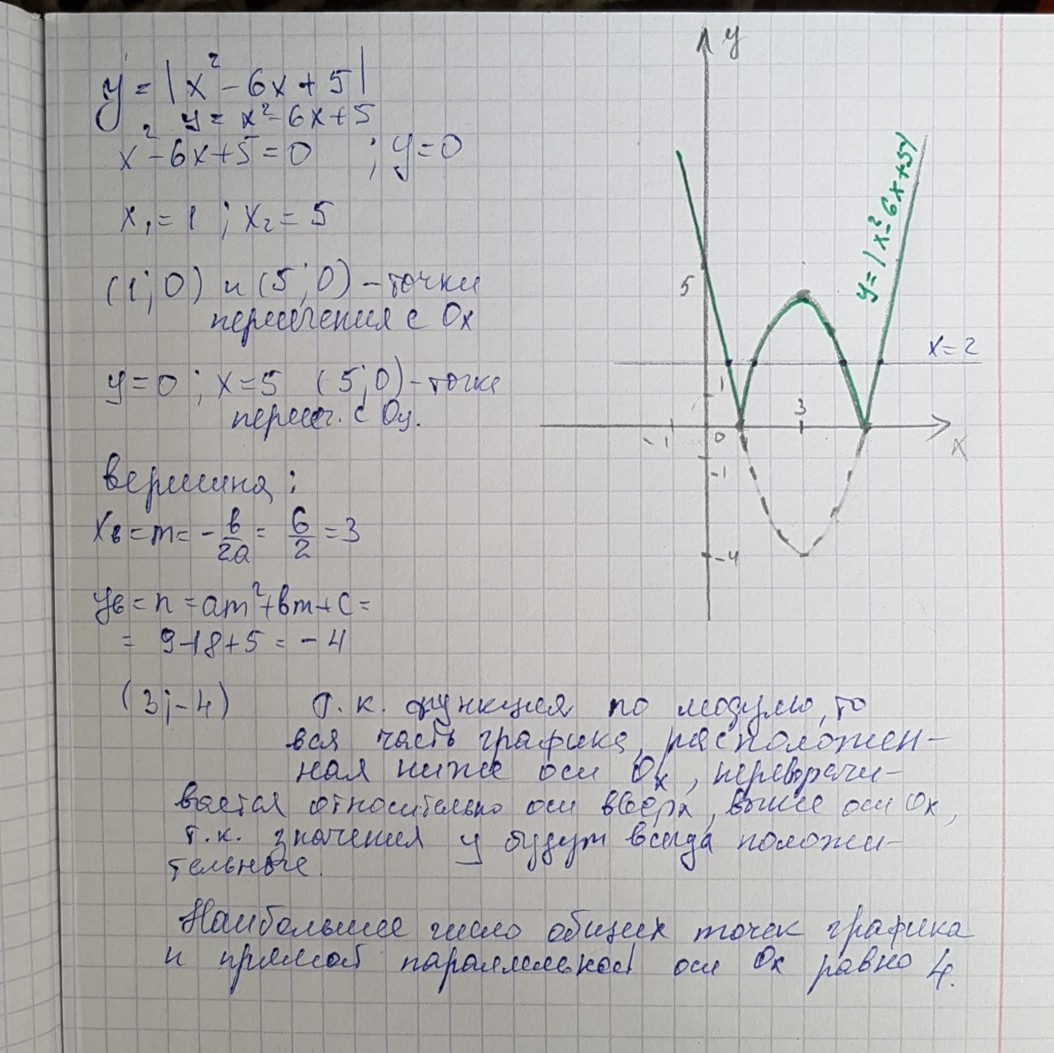 y = |x² - 6x + 5|
y = x² - 6x + 5
x² - 6x + 5 = 0 ; y = 0
x₁ = 1 ; x₂ = 5
(1; 0) и (5; 0) - точки
пересечения с Ox
y = 0 ; x = 5 (5; 0) - точка
перес. с Oy.
вершина :
xв = m = - в/2a = 6/2 = 3
yв = n = am² + вm + c =
= 9 - 18 + 5 = - 4
(3; - 4) Т. к. функция по модулю, то
вся часть графика, расположен-
ная ниже оси Ox, переворачи-
вается относительно оси вверх, выше оси Ox,
т.к. значения y будут всегда положи-
тельные.
Наибольшее число общих точек графика
и прямой параллельной оси Ox равно 4.
y
5
y = |x² - 6x + 5|
x = 2
1
3
-1
0
x
-1
-4